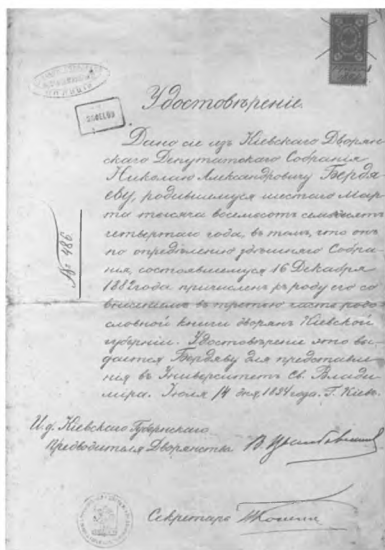 Удостовѣреніе.
Дано сіе изъ Кіевскаго Дворян-
скаго Депутатскаго Собранія
Николаю Александровичу Бердя-
еву, родившемуся шестаго Мар-
та тысяча восемьсотъ семьдесятъ
четвертаго года, въ томъ, что онъ
по опредѣленію здѣшняго Собра-
нія, состоявшемуся 16 Декабря
1882 года причисленъ къ роду его со
внесеніемъ въ третью часть родо-
словной книги дворянъ Кіевской
губерніи. Удостовѣреніе это вы-
дается Бердяеву для представле-
нія въ Университетъ Св. Влади-
міра. Іюля 14 дня 1894 года. Г. Кіевъ.
№ 486
И. д. Кіевскаго Губернскаго
Предводителя Дворянства
Секретарь